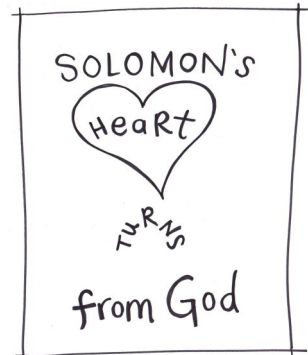 SOLOMON's
HeaRt
TuRNS
from God